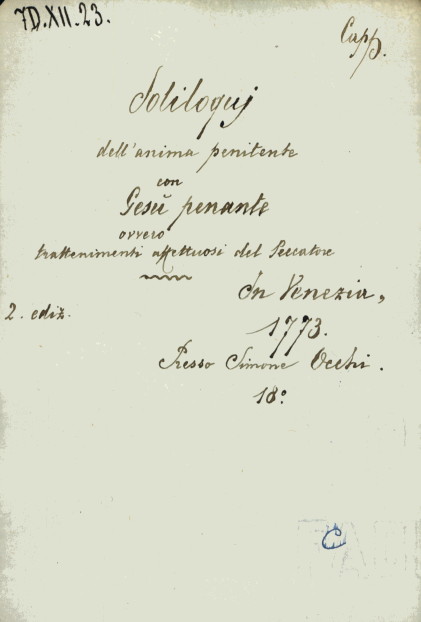 7D.XII.23.
Capp.
Soliloquj
dell'anima penitente
con
Gesù penante
ovvero
trattenimenti affettuosi del Peccatore
In Venezia,
2. ediz.
1773.
Presso Simone Occhi.
18°
C